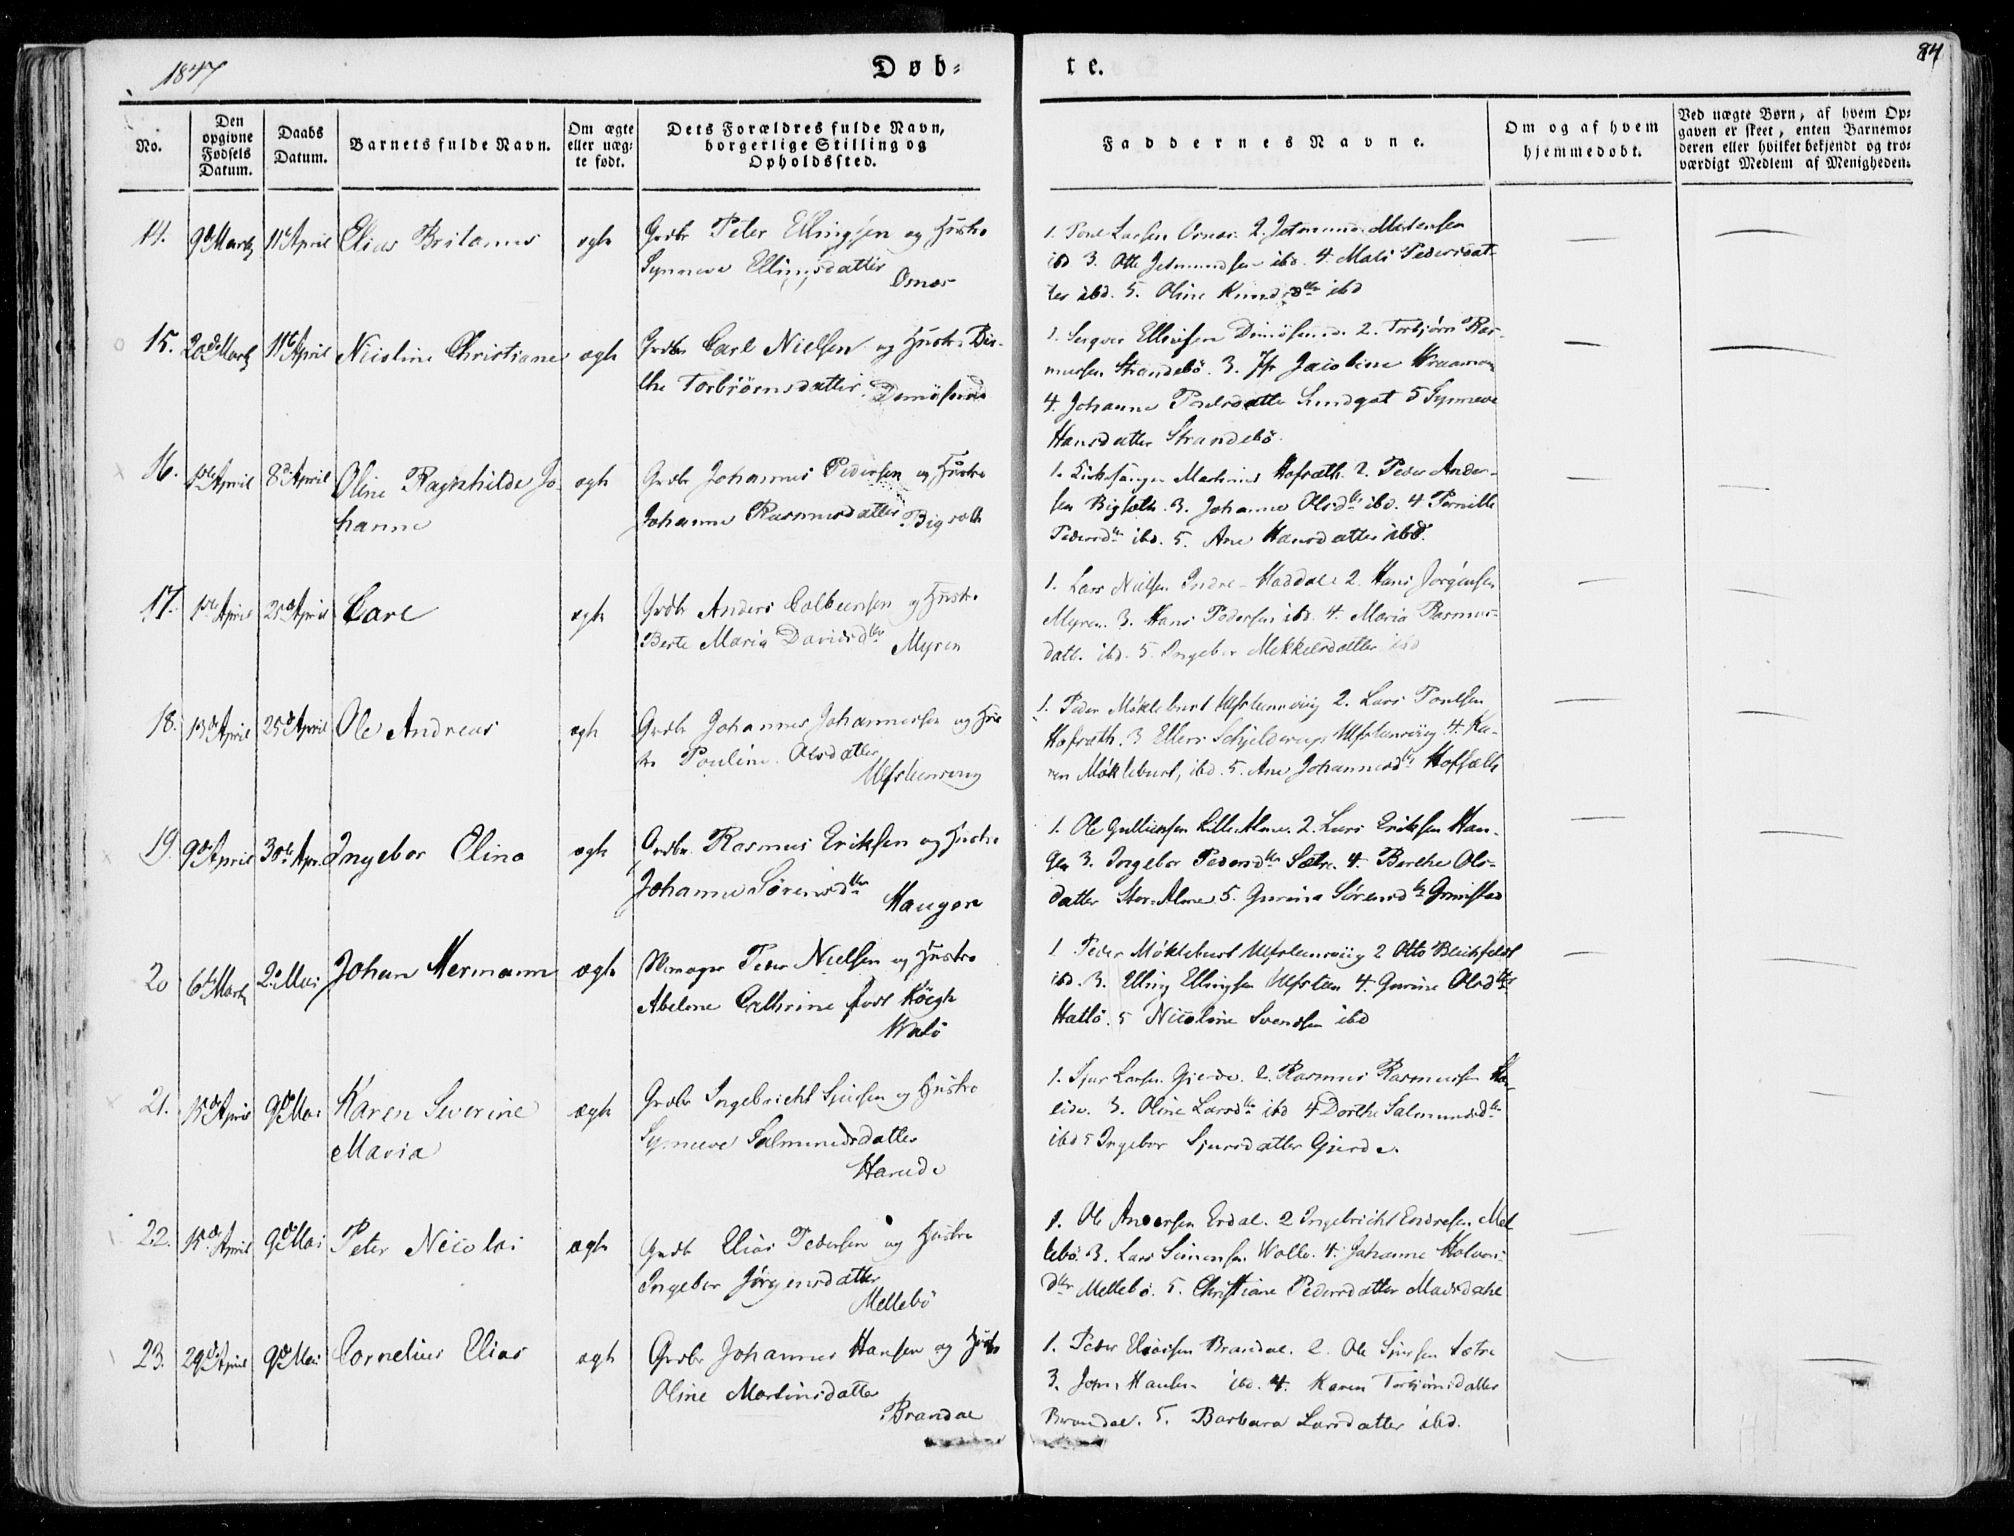 1847
Døb=
te.
84
No.
Den opgivne Fødsels Datum.
Daabs Datum.
Barnets fulde Navn.
Om ægte eller uæg= te født.
Dets Forældres fulde Navn, borgerlige Stilling og Opholdssted.
Faddernes Navne.
Om og af hvem hjemmedøbt.
Ved uægte Børn, af hvem Op= gaven er skeet, enten Barnemo= deren eller hvilket bekjendt og tro= værdigt Medlem af Menigheden.
14. 9d Marts 11te April Elias ægte Grdbr Peter Ellingsen og Hustro
Synneve Ellingsdatter
1. Poul Larsen 2.
ibd 3. Otte ibd. 4. Mali Pedersdat-
ter ibd. 5. Oline Knudsdtr ibd
15. 20de Marts 11te April Nicoline Christiane ægte Grdbr Carl Nielsen og Hustro Bir-
the Torbiörnsdatter. Dimösund
1. Ellingsen Dimösund. 2. Torbjörn Ras-
mussen Strandebö. 3. Jfr Jacobine
4. Johanne Poulsdatter 5 Synneve
Hansdatter Strandebö.
16. 1ste April 8d April Oline Ragnhilde Jo-
hanne
ægte Grdbr Johannes Pedersen og Hustro
Johanne Rasmusdatter Bigsæth
1. Kirkesanger Martinus Hofsæth. 2. Peder Ander-
sen Bigsæth. 3. Johanne Olsdtr ibd. 4 Pernille
Pedersdtr ibd. 5. Ane Hansdatter ibd.
17. 1ste April 25d April Carl ægte Grdbr Anders Colbensen og Hustro
Berte Maria Davidsdtr
Myren
1. Lars Nielsen Indre- 2. Hans Jörgensen
Myren. 3. Hans Pedersen ibd. 4. Maria Rasmus-
datt. ibd. 5. Ingebor Mekkelsdatter ibd
18. 13de April 25de April Ole Andreas ægte Grdbr Johannes Johannessen og Hus-
tro Pouline Olsdatter
Ulfsteenviig
1. Peder Mökleburt Ulfsteenviig 2. Lars Poulsen
Hofsæth. 3 Ellers Schjelderup Ulfsteenviig 4. Ka-
ren Mökleburt, ibd. 5. Ane Johannesdtr Hofsæth
19. 9de April 30te Apr. Ingebor Elina ægte Grdbr Rasmus Eriksen og Hustro
Johanne Sörensdtr
Haugen
1. Ole Lille Alme. 2. Lars Eriksen Hau-
gen 3. Ingebor Pedersdtr Sætre 4. Berthe Ols-
datter Stor-Alme 5. Gurina Sörensdtr Grimstad
20 6te Marts 2d Mai Johan Hermann ægte Peder Nielsen og Hustro
Abelone Cathrine född Köegh
1 Peder Mökleburt Ulfsteenviig 2 Otto Blichfeldt
ibd. 3. Elling Ellingsen Ulfsteen 4. Gurine Olsdtr
Hatlö. 5 Nicoline Svendsen ibd
21. 15de April 9de Mai Karen Severine
Maria
ægte Grdbr Ingebricht Sjursen og Hustro
Synneve Salmundsdatter
Hareide
1. Sjur Larsen Gjerde. 2. Rasmus Rasmussen Ha-
eide. 3. Oline Larsdtr ibd 4 Dorthe Salmundsdtr
ibd 5 Ingebor Sjursdatter Gjerde.
22. 15de April 9de Mai Peter Nicolai ægte Grdbr Elias Pedersen og Hustro
Ingebor Jörgensdatter
Mellebö
1. Ole Andersen Erdal. 2 Ingebricht Endresen Mel
lebö. 3. Lars Simensen 4. Johanne
dtr Mellebö. 5. Christiane Pedersdatter
23. 29de April 9de Mai Cornelius Elias ægte Grdbr Johannes Hansen og Hustro
Oline Martinsdatter
Brandal
1. Peder Eliassen Brandal. 2. Ole Sjursen Sætre
3. John Hansen ibd. 4. Karen Torbjörnsdatter
Brandal. 5. Barbara Larsdatter ibd.